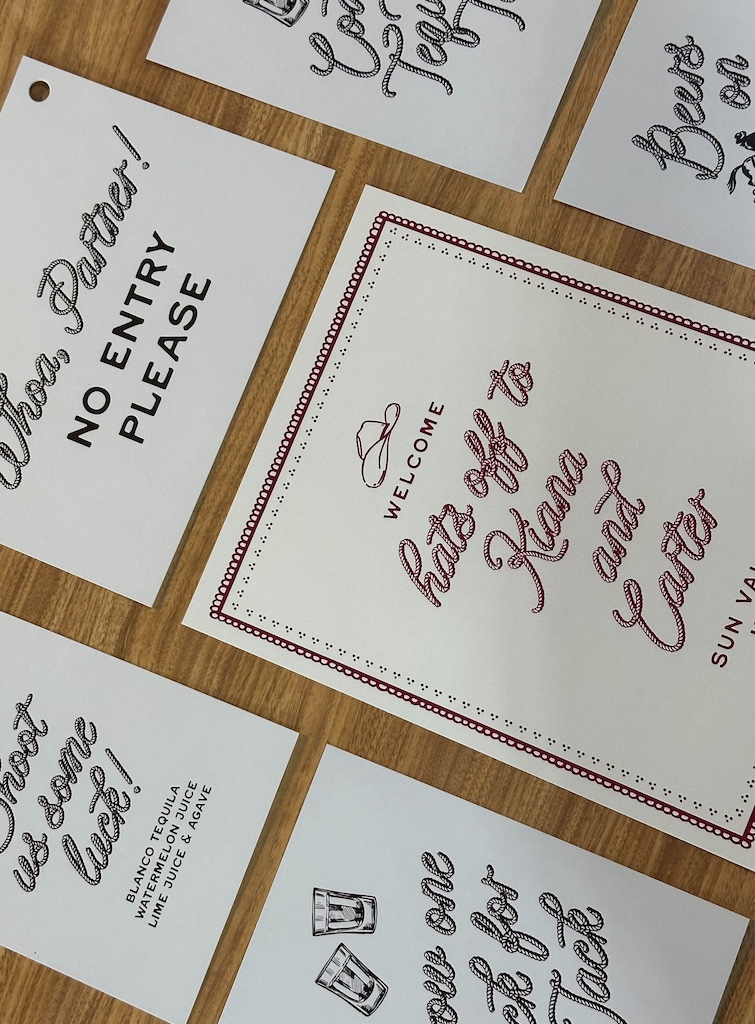 Whoa, Partner!
NO ENTRY
PLEASE
Beers
on
WELCOME
hats off to
Kiana
and
Carter
SUN VAL
Shoot
us some
luck!
BLANCO TEQUILA
WATERMELON JUICE
LIME JUICE & AGAVE
one
for
Jack